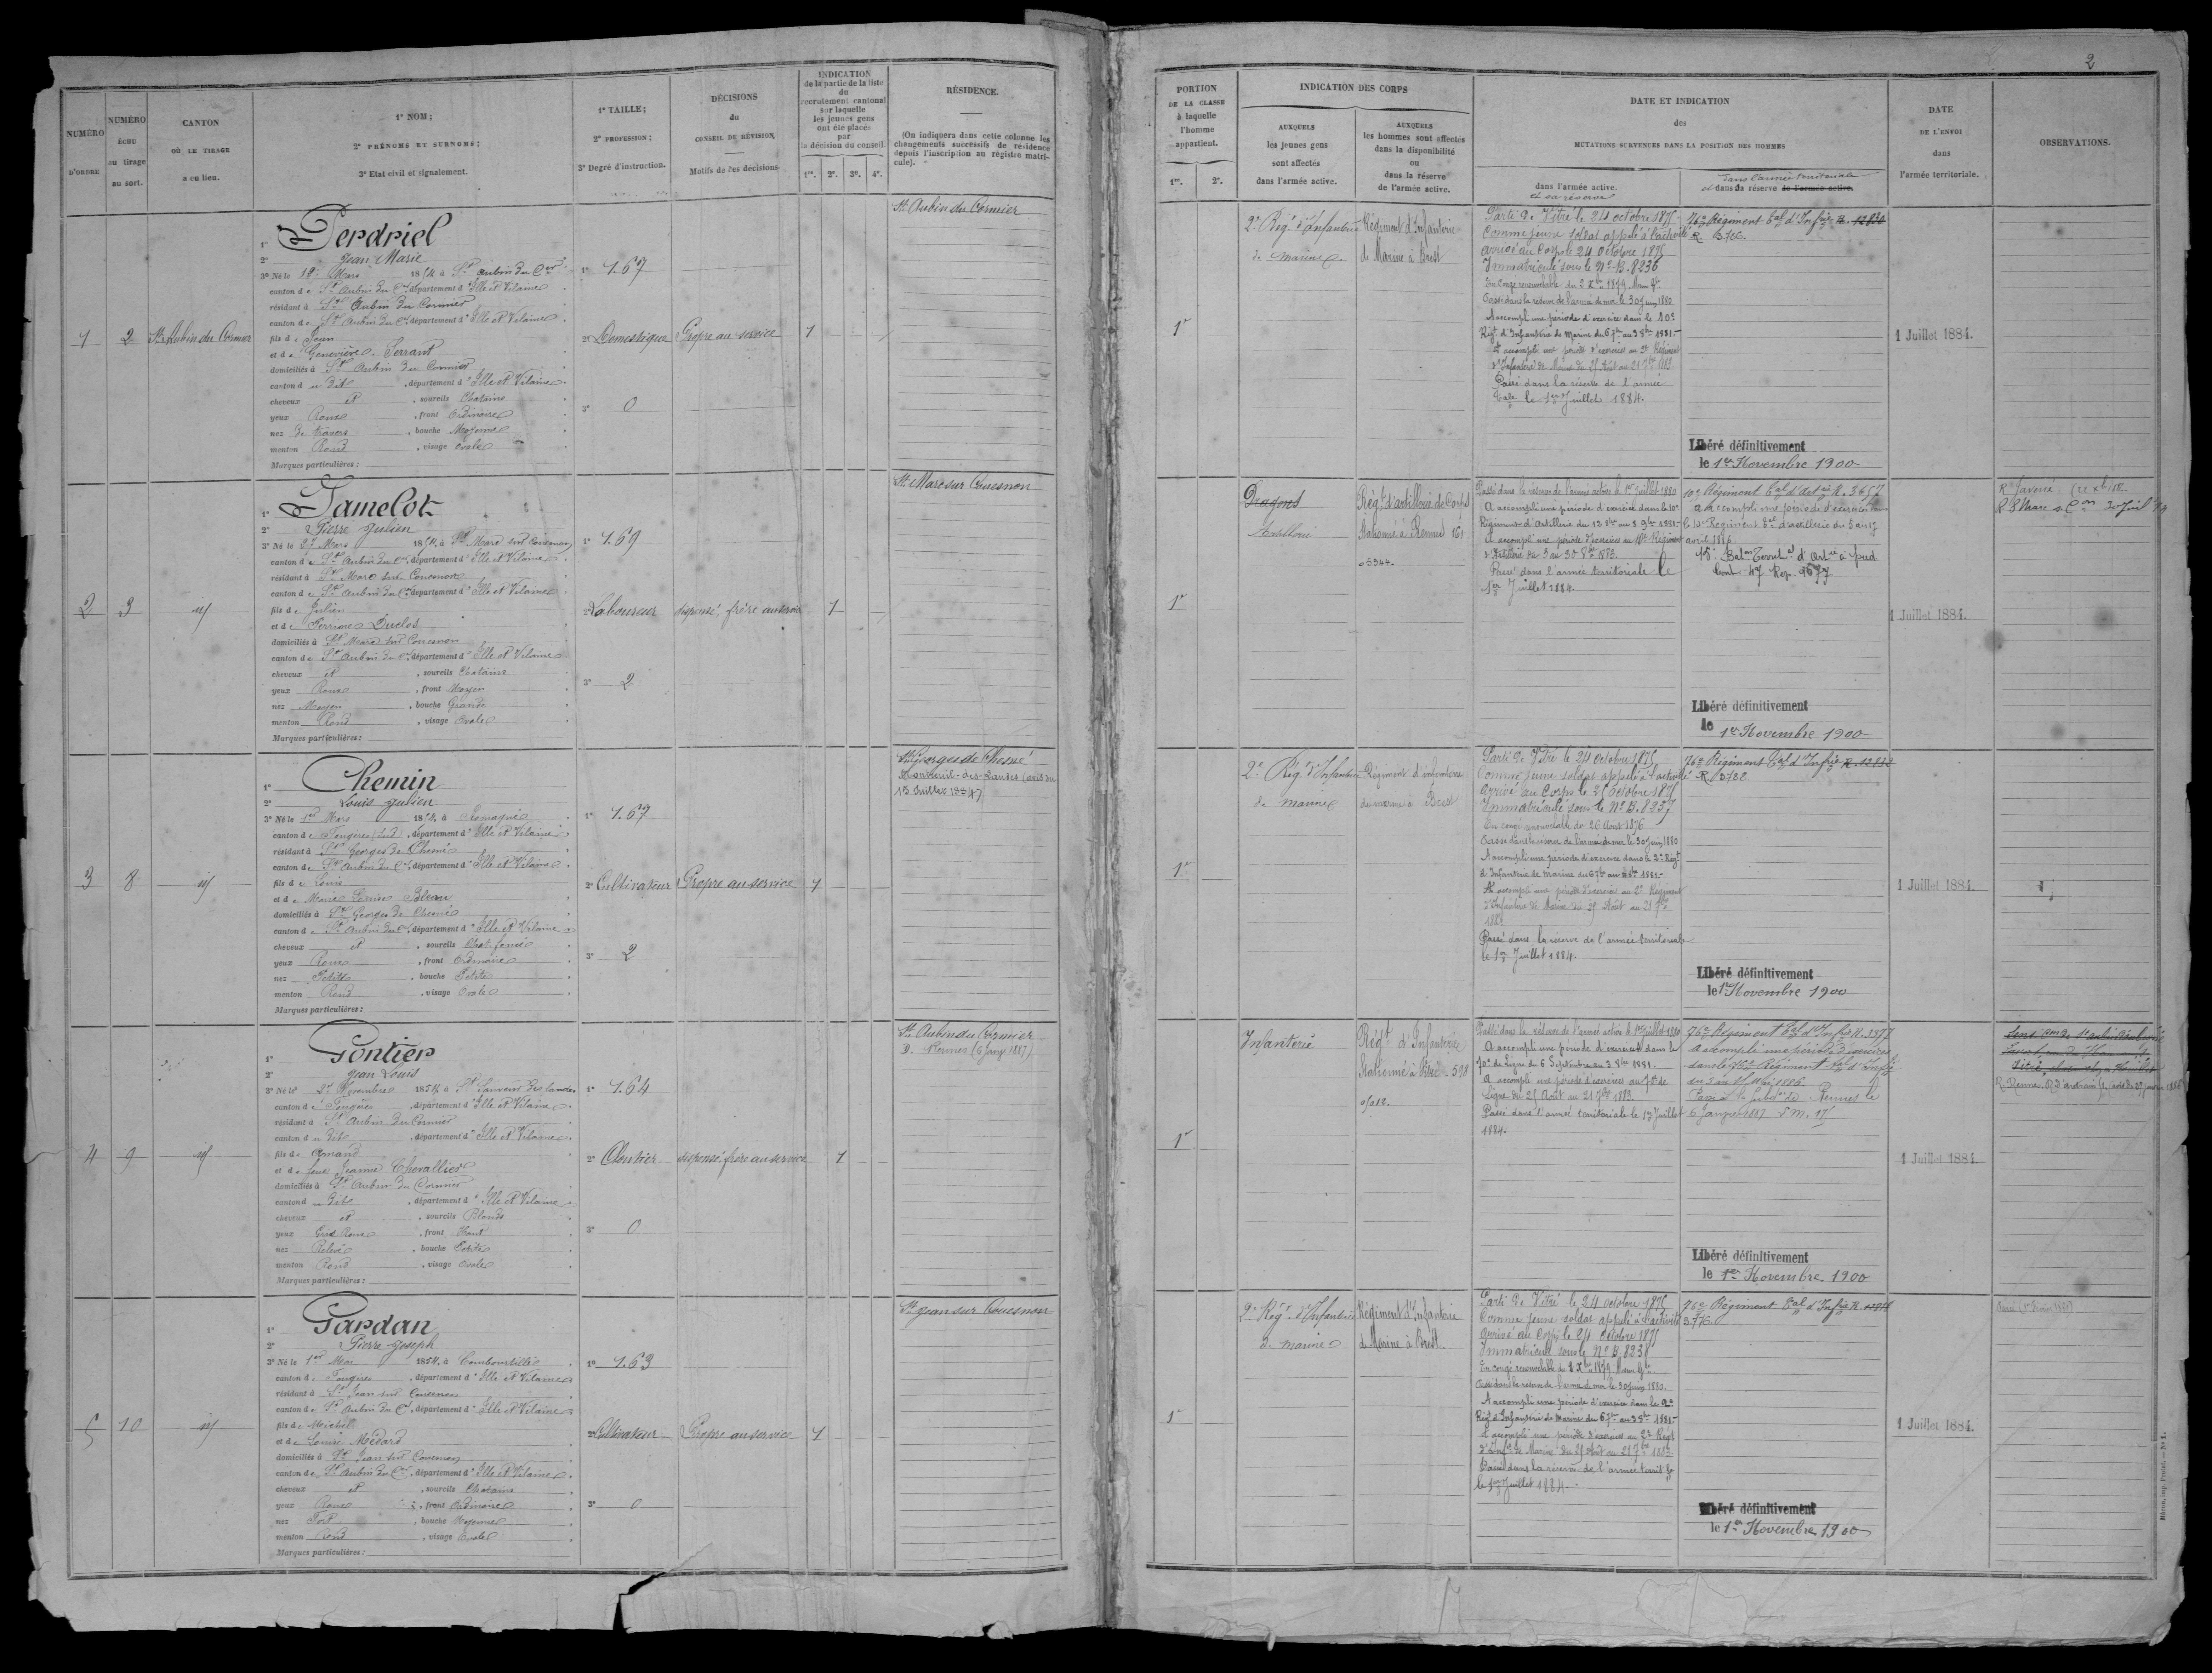 2
NUMÉRO D'ORDRE
NUMÉRO échu au tirage au sort.
CANTON OÙ LE TIRAGE a eu lieu.
1° NOM;
2° PRÉNOMS ET SURNOMS;
3° Etat civil et signalement.
1° TAILLE;
2° PROFESSION;
3° Degré d'instruction.
DÉCISIONS
du
CONSEIL DE RÉVISION
Motifs de ces décisions
INDICATION
de la partie de la liste
du
recrutement cantonal
sur laquelle
les jeunes gens
ont été placés
par
la décision du conseil.
1re. 2e. 3e. 4e.
RÉSIDENCE.
(On indiquera dans cette colonne les
changements successifs de résidence
depuis l'inscription au registre matri-
cule).
PORTION
DE LA CLASSE
à laquelle
l'homme
appartient.
1re. 2e.
INDICATION DES CORPS
AUXQUELS
les jeunes gens
sont affectés
dans l'armée active.
AUXQUELS
les hommes sont affectés
dans la disponibilité
ou
dans la réserve
de l'armée active.
DATE ET INDICATION
des
MUTATIONS SURVENUES DANS LA POSITION DES HOMMES
dans l'armée active.
et en réserve
dans l'armée territoriale
et dans sa réserve de l'armée active.
DATE
DE L'ENVOI
dans
l'armée territoriale.
OBSERVATIONS.
1
2
St Aubin du Cormier
1° Perdriel
2° Jean Marie
3° Né le 18 Mars 1854 à St Aubin du Cer
canton de St Aubin du Cer, département d'Ille et Vilaine
résidant à St Aubin du Cormier
canton de St Aubin du Cer, département d'Ille et Vilaine
fils de Jean
et de Geneviève Serrant
domiciliés à St Aubin du Cormier
canton du dit, département d'Ille et Vilaine
cheveux et, sourcils Chatains
yeux Roux, front Ordinaire
nez de travers, bouche Moyenne
menton Rond, visage ovale
Marques particulières :
1° 1.67
2° Domestique
3° 0
Propre au service
1
St Aubin du Cormier
1re
2e Rég. d'Infanterie
de marine
Régiment d'Infanterie
de Marine à Brest
Parti de Vitré le 24 octobre 1875
Comme jeune soldat appelé à l'activité
arrivé au Corps le 24 octobre 1875
Immatriculé sous le No B.8236
En congé renouvelable du 2 Xbre 1879
Passé dans la réserve de l'armée de mer le 30 Juin 1880
A accompli une période d'exercice dans le
Régt d'Infanterie de Marine du 6 7bre au 3 8bre 1881
A accompli une période d'exercices au 2e Régiment
d'Infanterie de Marine du 25 Août au 21 7bre 1883
Passé dans la réserve de l'armée
Tale le 1er Juillet 1884.
76e Régiment Tal d'Infie R. 12830
R. 3786.
Libéré définitivement
le 1er Novembre 1900
1 Juillet 1884.
2
3
id
1° Jamelot
2° Pierre Julien
3° Né le 27 Mars 1854, à St Marc sur Couesnon
canton de St Aubin du Cer, département d'Ille et Vilaine
résidant à St Marc sur Couesnon
canton de St Aubin du Cer, département d'Ille et Vilaine
fils de Julien
et de Perrine Duclos
domiciliés à St Marc sur Couesnon
canton de St Aubin du Cer, département d'Ille et Vilaine
cheveux et, sourcils Chatains
yeux Roux, front Moyen
nez Moyen, bouche Grande
menton Rond, visage Ovale
Marques particulières :
1° 1.69
2° Laboureur
3° 2
dispensé, frère au service
1
St Marc sur Couesnon
1re
Dragons
Artillerie
Régt d'artillerie de Corps
Stationné à Rennes 161
05344.
Passé dans la réserve de l'armée active le 1er Juillet 1880
A accompli une période d'exercice dans le 10e
Régiment d'Artillerie du 12 8bre au 8 9bre 1881
A accompli une période d'exercices au 10e Régiment
d'Artillerie du 3 au 30 8bre 1883.
Passé dans l'armée territoriale le
1er Juillet 1884.
10e Régiment Tal d'Artie R. 3657
A accompli une période d'exercices dans
le 10e Régiment Tal d'artillerie du 5 au 17
avril 1886
15e Baton Territal d'Artie à pied
Cont. 47 Rep. 9677
Libéré définitivement
le 1er Novembre 1900
1 Juillet 1884.
3
8
id
1° Chemin
2° Louis Julien
3° Né le 1er Mars 1854, à Romagné
canton de Fougères (sud), département d'Ille et Vilaine
résidant à St Georges de Chesné
canton de St Aubin du Cer, département d'Ille et Vilaine
fils de Louis
et de Marie Louise Bleau
domiciliés à St Georges de Chesné
canton de St Aubin du Cer, département d'Ille et Vilaine
cheveux et, sourcils Chat. foncé
yeux Roux, front Ordinaire
nez Petit, bouche Petite
menton Rond, visage Ovale
Marques particulières :
1° 1.67
2° Cultivateur
3° 2
Propre au service
1
St Georges de Chesné
Montreuil-des-Landes (avis du
15 Juillet 1884)
1re
2e Rég d'Infanterie
de marine
Régiment d'infanterie
de marine à Brest
Parti de Vitré le 24 octobre 1875
Comme jeune soldat appelé à l'activité
arrivé au Corps le 25 octobre 1875
Immatriculé sous le No B.8257
En congé renouvelable du 26 Août 1876
Passé dans la réserve de l'armée de mer le 30 Juin 1880
A accompli une période d'exercice dans le 2e Régt
d'Infanterie de marine du 6 7bre au 3 8bre 1881
A accompli une période d'exercices au 2e Régiment
d'Infanterie de Marine du 25 Août au 21 7bre
1883
Passé dans la réserve de l'armée territoriale
le 1er Juillet 1884.
76e Régiment Tal d'Infie R. 12832
R. 3782
Libéré définitivement
le 1er Novembre 1900
1 Juillet 1884.
4
9
id
1° Gontier
2° Jean Louis
3° Né le 2 Novembre 1854 à St Sauveur des landes
canton de Fougères, département d'Ille et Vilaine
résidant à St Aubin du Cormier
canton du dit, département d'Ille et Vilaine
fils de Amand
et de feue Jeanne Chevallier
domiciliés à St Aubin du Cormier
canton du dit, département d'Ille et Vilaine
cheveux et, sourcils Blonds
yeux Gris Roux, front Haut
nez Relevé, bouche Petite
menton Rond, visage Ovale
Marques particulières :
1° 1.64
2° Cloutier
3° 0
dispensé frère au service
1
St Aubin du Cormier
D. Rennes (6 Janv. 1887)
1re
Infanterie
Régt d'Infanterie
Stationné à Vitré
Passé dans la réserve de l'armée active le 1er Juillet 1880
A accompli une période d'exercice dans le
70e de Ligne du 6 Septembre au 3 8bre 1881.
A accompli une période d'exercices au 70e de
Ligne du 25 Août au 21 7bre 1883.
Passé dans l'armée territoriale le 1er Juillet
1884.
76e Régiment Tal d'Infie R. 3377
A accompli une période d'exercices
dans le 76e Régiment Tal d'Infie
du 3 au 15 Mai 1886.
Passé à la subdon de Rennes le
6 Janvier 1887
Libéré définitivement
le 1er Novembre 1900
1 Juillet 1884.
5
10
id
1° Gardan
2° Pierre Joseph
3° Né le 1er Mai 1854, à Combourtillé
canton de Fougères, département d'Ille et Vilaine
résidant à St Jean sur Couesnon
canton de St Aubin du Cer, département d'Ille et Vilaine
fils de Michel
et de Louise Médard
domiciliés à St Jean sur Couesnon
canton de St Aubin du Cer, département d'Ille et Vilaine
cheveux et, sourcils Chatains
yeux Roux, front Ordinaire
nez Fort, bouche Moyenne
menton Rond, visage Ovale
Marques particulières :
1° 1.63
2° Cultivateur
3° 0
Propre au service
1
St Jean sur Couesnon
1re
2e Rég. d'Infanterie
de marine
Régiment d'Infanterie
de Marine à Brest.
Parti de Vitré le 24 octobre 1875
Comme jeune soldat appelé à l'activité
arrivé au Corps le 24 Octobre 1875
Immatriculé sous le No B.8238
En congé renouvelable du 2 Xbre 1879
Passé dans la réserve de l'armée de mer le 30 Juin 1880.
A accompli une période d'exercice dans le 2e
Régt d'Infanterie de Marine du 6 7bre au 3 8bre 1881
A accompli une période d'exercices au 2e Régt
d'Infie de Marine du 25 Août au 21 7bre 1883
Passé dans la réserve de l'armée territle
le 1er Juillet 1884.
76e Régiment Tal d'Infie
3776
Libéré définitivement
le 1er Novembre 1900
1 Juillet 1884.